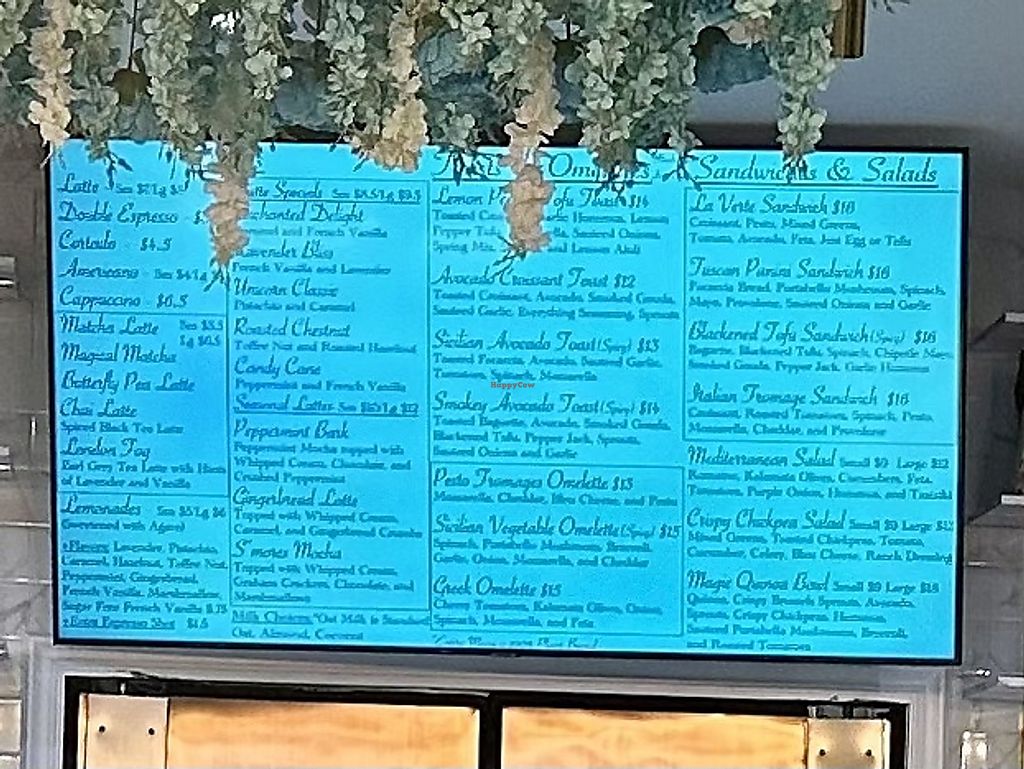 Latte
Double Espresso
Cortado - $4.5
Americano
Cappuccino - $6.5
Matcha Latte
Magical Matcha
Butterfly Pea Latte
Chai Latte
Spiced Black Tea Latte
London Fog
Earl Grey Tea Latte with Hints
of Lavender and Vanilla
Lemonades
Sweetened with Agave
+Flavors: Lavender, Pistachio,
Caramel, Hazelnut, Toffee Nut,
Peppermint, Gingerbread,
French Vanilla, Marshmallow,
Sugar Free French Vanilla
+Extra Espresso Shot $1.5
Specials
Enchanted Delight
and French Vanilla
Lavender Bliss
French Vanilla and Lavender
Unicorn Classic
Pistachio and Caramel
Roasted Chestnut
Toffee Nut and Roasted Hazelnut
Candy Cane
Peppermint and French Vanilla
Seasonal Lattes
Peppermint Bark
Peppermint Mocha topped with
Whipped Cream, Chocolate, and
Crushed Peppermint
Gingerbread Latte
Topped with Whipped Cream,
Caramel, and Gingerbread Crumbs
S'mores Mocha
Topped with Whipped Cream,
Graham Crackers, Chocolate, and
Marshmallows
Milk Choices: *Oat Milk is Standard
Oat, Almond, Coconut
Lemon Tofu Toast $14
Avocado Croissant Toast $12
Toasted Croissant, Avocado, Smoked Gouda,
Sauteed Garlic, Everything Seasoning, Sprouts
Sicilian Avocado Toast (Spicy) $13
Toasted Focaccia, Avocado, Sauteed Garlic,
Tomatoes, Spinach, Mozzarella
HappyCow
Smokey Avocado Toast (Spicy) $14
Toasted Baguette, Avocado, Smoked Gouda,
Blackened Tofu, Pepper Jack, Sprouts,
Sauteed Onions and Garlic
Pesto Fromages Omelette $13
Mozzarella, Cheddar, Bleu Cheese, and Pesto
Sicilian Vegetable Omelette (Spicy) $15
Spinach, Portobello Mushrooms, Broccoli,
Garlic, Onion, Mozzarella, and Cheddar
Greek Omelette $15
Cherry Tomatoes, Kalamata Olives, Onion,
Spinach, Mozzarella, and Feta
Sandwiches & Salads
La Verte Sandwich $16
Croissant, Pesto, Mixed Greens,
Tomato, Avocado, Feta, Just Egg or Tofu
Tuscan Panini Sandwich $16
Focaccia Bread, Portobello Mushrooms, Spinach,
Mayo, Provolone, Sauteed Onions and Garlic
Blackened Tofu Sandwich (Spicy) $16
Baguette, Blackened Tofu, Spinach, Chipotle Mayo,
Smoked Gouda, Pepper Jack, Garlic Hummus
Italian Fromage Sandwich $16
Croissant, Roasted Tomatoes, Spinach, Pesto
Mozzarella, Cheddar, and Provolone
Mediterranean Salad Small $9 Large $12
Romaine, Kalamata Olives, Cucumbers, Feta,
Tomatoes, Purple Onion, Hummus, and Tzatziki
Crispy Chickpea Salad Small $9 Large $12
Mixed Greens, Toasted Chickpeas, Tomato,
Cucumber, Celery, Bleu Cheese, Ranch Dressing
Magic Quinoa Bowl Small $9 Large
Quinoa, Crispy Brussels Sprouts, Avocado,
Sprouts, Crispy Chickpeas, Hummus,
Sauteed Portobello Mushrooms, Broccoli,
and Roasted Tomatoes